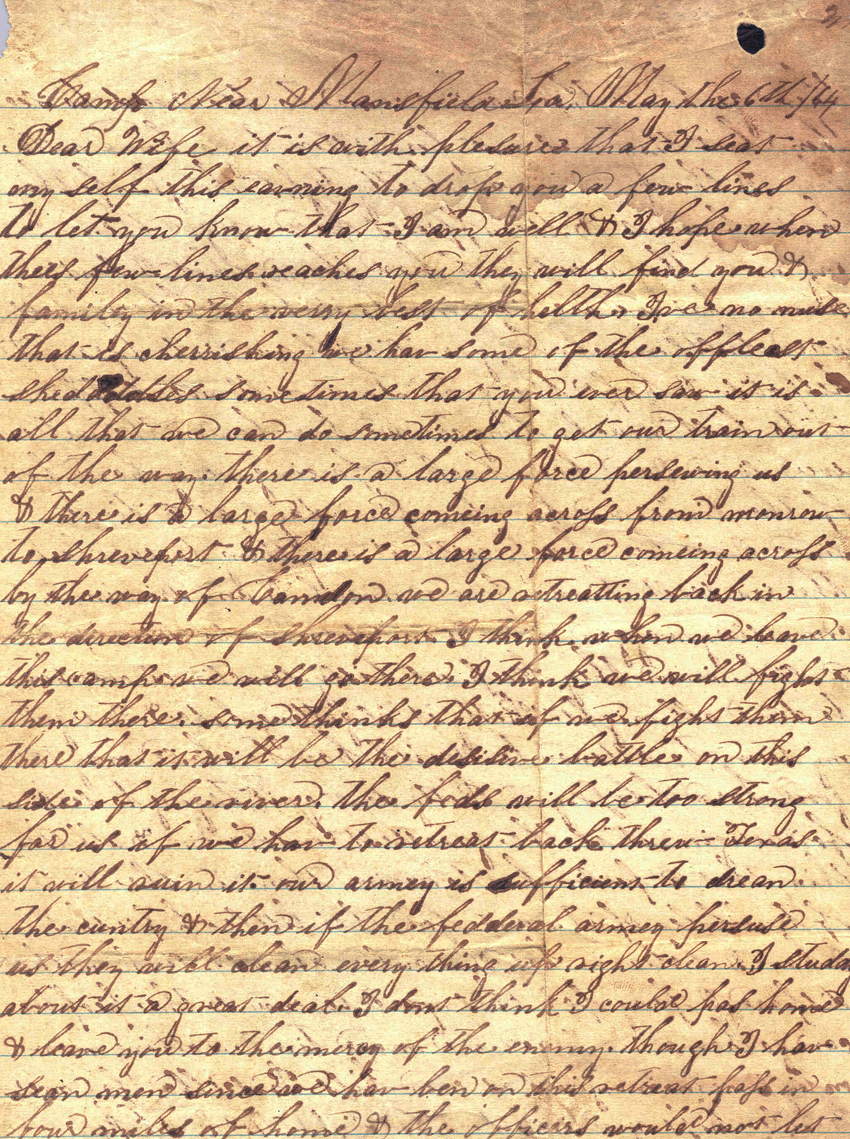 Camp Near Mansfield La. May the 6th /64
Dear Wife it is with plesure that I seat
my self this eavning to drop you a few lines
to let you know that I am well & I hope when
thees few lines reaches you they will find you &
family in the verry best of helth I've no nuse
that is cherrishing we hav some of the
sometimes that you ever saw it is
all that we can do sometimes to get our train out
of the way. there is a large force persewing us
& there is a large force comeing across from monrow
to shreveport & there is a large force comeing across
by the way of Camden we are retreatting back in
the direction of Shreveport. I think when we leave
this camp we will go there. I think we will fight
them there. some thinks that if we fight them
there that it will be the desisive battle on this
side of the river. the feds will be too strong
for us if we hav to retreat back threw Texas
it will ruin it. our armey is sufficient to drean
the cuntry & then if the fedderal armey persue
us they will clean every thing up right clean. I study
about it a great deal. I dont think I could pas home
& leave you to the mercy of the enemy. though I hav
sean men since we hav ben on this retreat pass in
four miles of home & the officers would not let